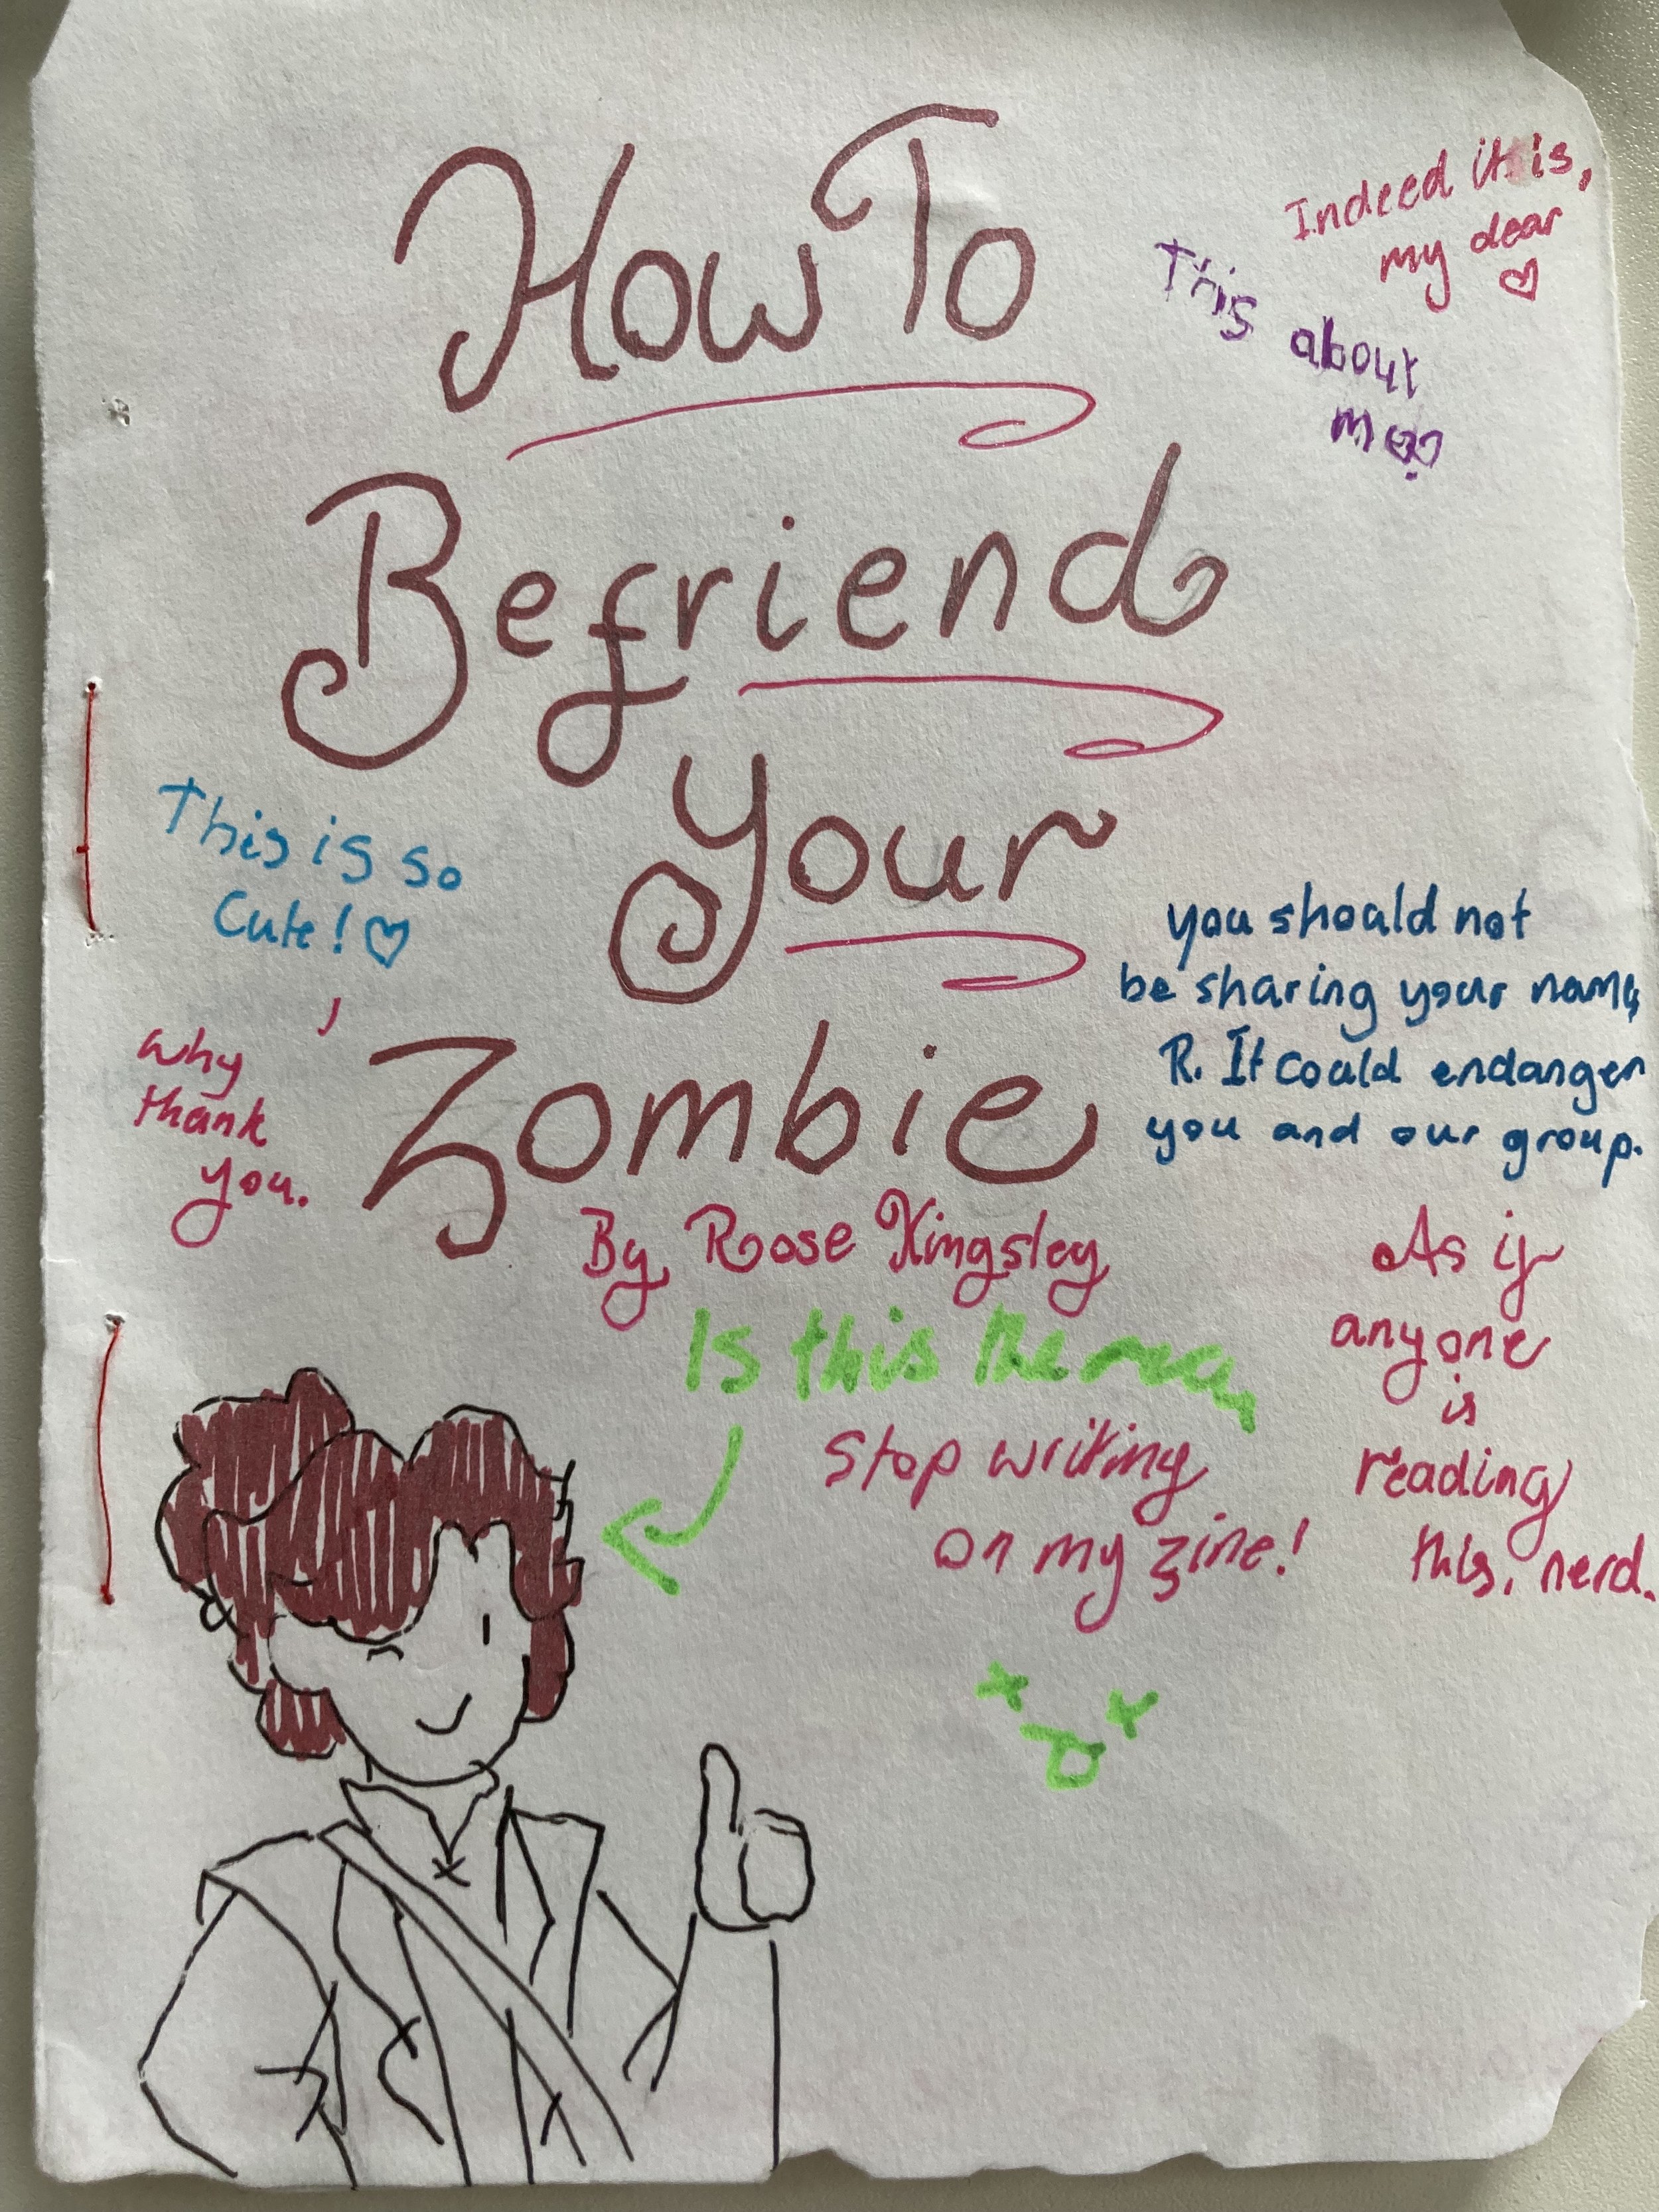 How To
Indeed it is,
my dear
This
about
me?
Befriend
Your
This is so
Cute!
Why
thank
you.
you should not
be sharing your name,
R. It could endanger
you and our group.
Zombie
By Rose Kingsley
As if
anyone
is
reading
this, nerd.
Is this the
Stop writing
on my zine!